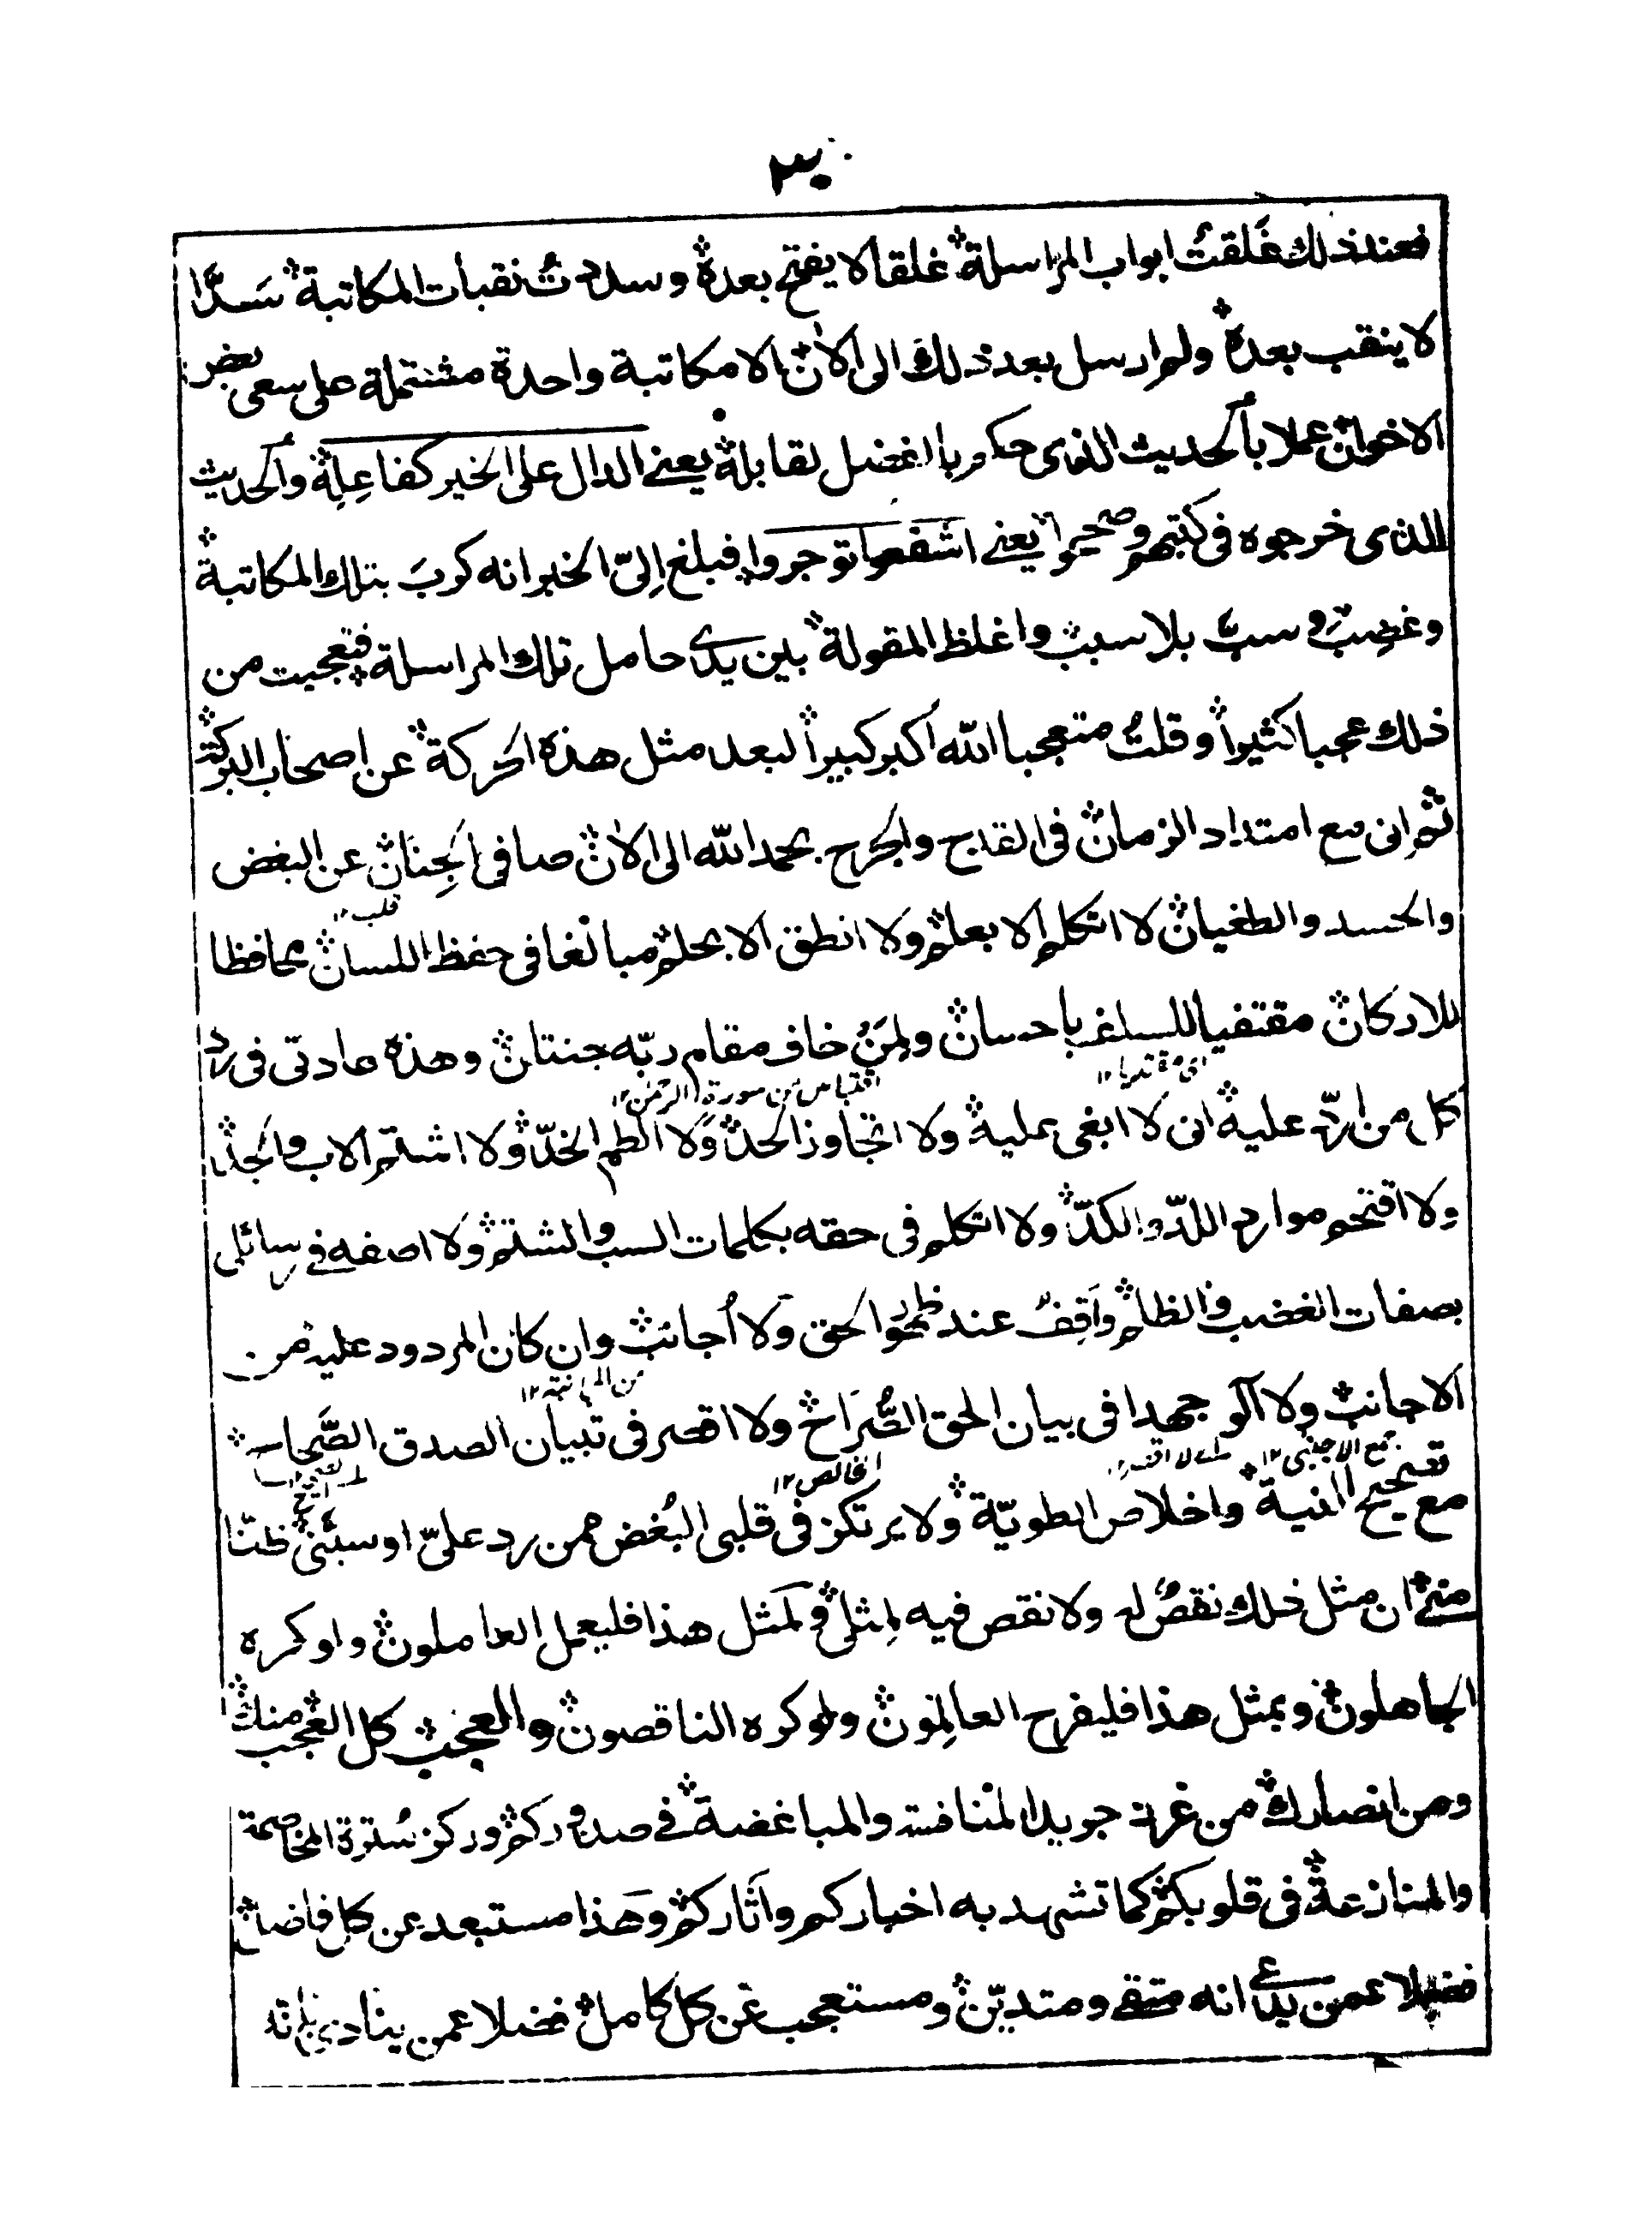 ٣٠
فعند ذلك غَلقتُ ابواب المراسلة غلقا لا يفتح بعده وسددتُ نقبات المكاتبة سَدًّا
لا ينقب بعده ولم ارسل بعد ذلك الى الآن الا مكاتبة واحدة مشتملة على سعى بعض
الاخوان عملا بالحديث الذى حكم بافضل لقابله يعنے الدال على الخير كفاعِلِه والحديث
الذى خرجوه فى كتبهم وصححوا يعنے اشفعوا توجروا فبلغ اِلىّ الخبر انه كربَ بتلك المكاتبة
وغضِبَ وسبّ بلا سبب واغلظ المقولة بين يدَے حامل تلك المراسلة فتعجبت من
ذلك عجبا كثيرا وقلتُ متعجبا الله اكبر كبيرا لبعد مثل هذه الحركة عن اصحاب البركة
ثم اِنى مع امتداد الزمان فى القدح والجرح بحمد الله الى الآن صافى الجِنان عن البغض
قلب ١٢
والحسد والطغيان لا اتكلم الا بعلم ولا انطق الا بحلم مبالغا فى حفظ اللسان محافظا
للاركان مقتفيا للسلف باحسان ولِمَنْ خاف مقام ربّه جنتان وهذه عادتى فى رد
اى مقتديا ١٢
اقتباس من سورة الرحمٰن ١٢
كل من اردّ عليه انى لا ابغى عليه ولا اتجاوز الحد ولا الطم الخدّ ولا اشتم الاب والجد
ولا اقتحم موارد اللدّ والكدّ ولا اتكلم فى حقه بكلمات السب والشتم ولا اصفه فے رسائلى
بصفات الغضب والظلم واَقِفُ عند ظهور الحق ولا اُجانب وان كان المردود عليه من
من المجانبة ١٢
الاجانب ولا آلو جهدا فى بيان الحق الصُّرَاح ولا اقصر فى تبيان الصدق الصَّحاح
جمع الاجنبى ١٢
اے لا اقصر ١٢
الخالص ١٢
مع تصحيح النية واخلاص الطويّة ولا يرتكز فى قلبى البُغض ممن رد علىّ او سبّنى ظنّا
منے ان مثل ذلك نقصٌ له ولا نقص فيه لِمثلى ولمثل هذا فليعمل العاملون ولو كره
الجاهلون وبمثل هذا فليفرح العالِمون ولو كره الناقصون والعجب كل العجب منك
ومن انصارك من غرز جريد المنافسة والمباغضة فے صدوركم وركز سُترة المخاصمة
والمنازعة فى قلوبكم كما تشهد به اخباركم وآثاركم وهَذا مستبعد عن كل فاضل
فضلا عمن يدعے انه متقے ومتديّن ومستعجب عن كل كامل فضلا عمن ينادى بانه